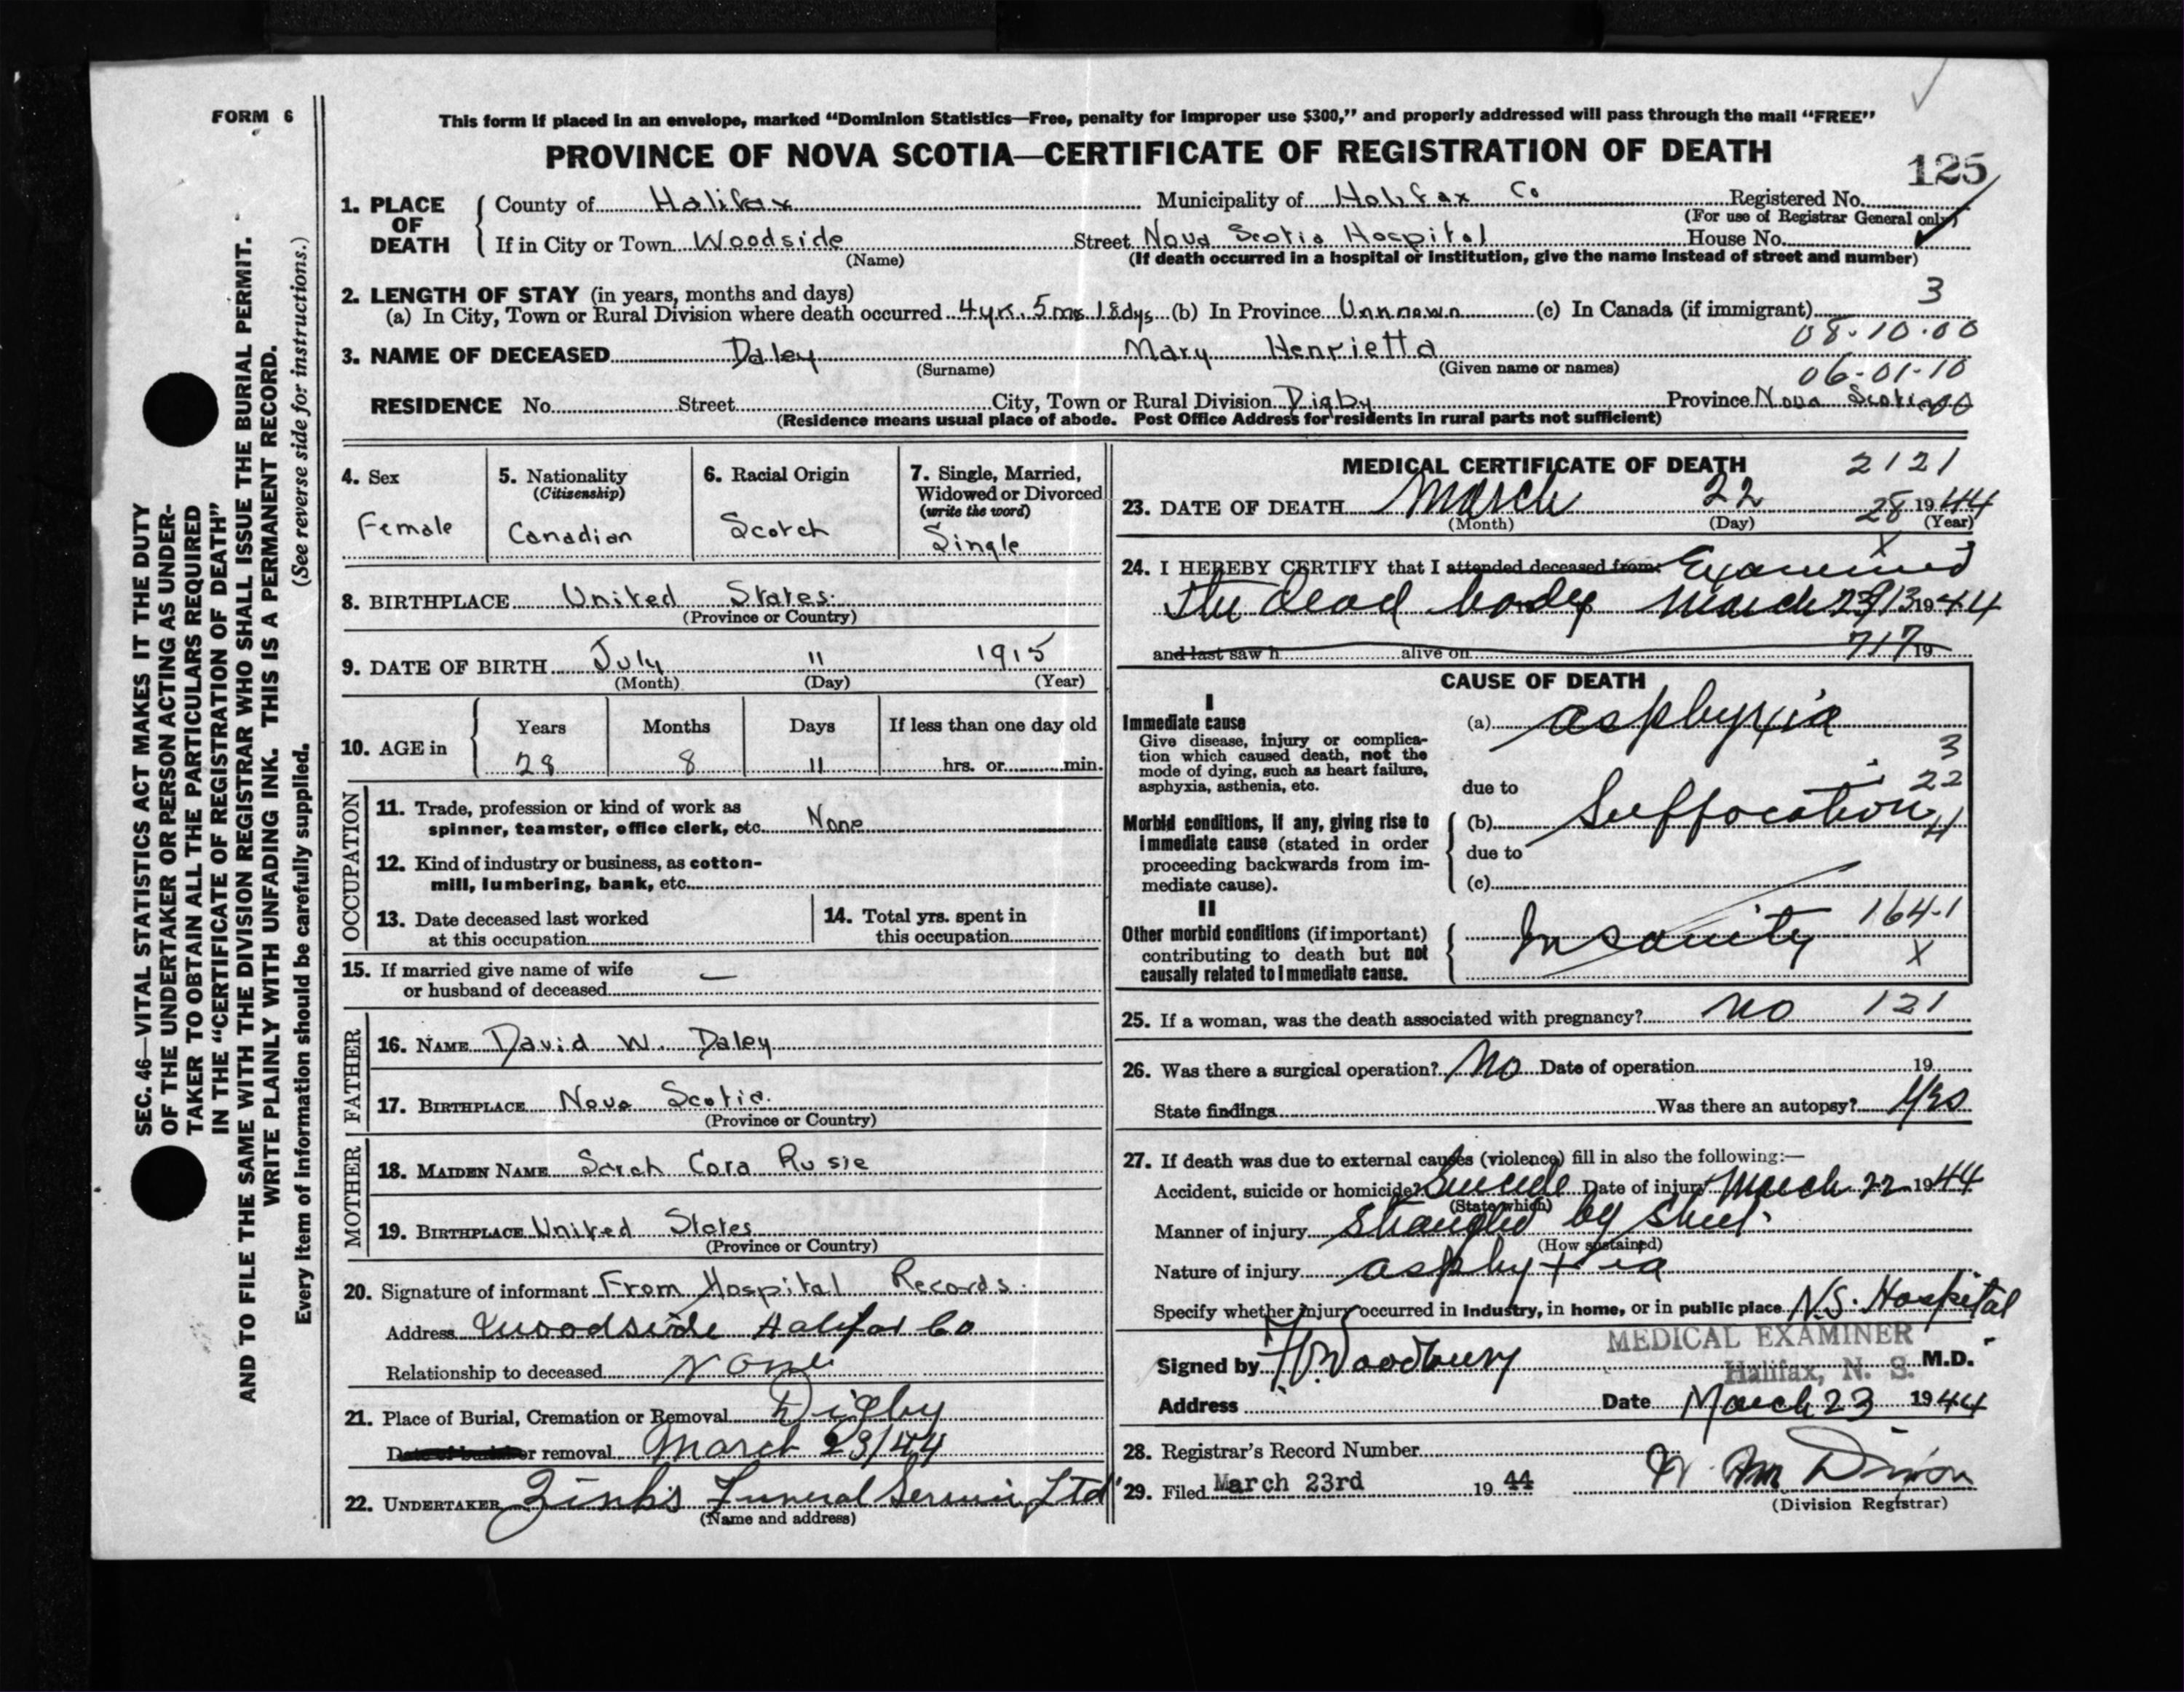 FORM 6
This form if placed in an envelope, marked “Dominion Statistics—Free, penalty for improper use $300,” and properly addressed will pass through the mail “FREE”
PROVINCE OF NOVA SCOTIA—CERTIFICATE OF REGISTRATION OF DEATH
125
1. PLACE OF DEATH
County of Halifax Municipality of Halifax Co Registered No.
(For use of Registrar General only)
If in City or Town Woodside Street Nova Scotia Hospital House No.
(Name) (If death occurred in a hospital or institution, give the name instead of street and number)
2. LENGTH OF STAY (in years, months and days) 3
(a) In City, Town or Rural Division where death occurred 4 yrs. 5 mos 18 dys (b) In Province Unknown (c) In Canada (if immigrant)
08-10-00
3. NAME OF DECEASED Daley Mary Henrietta
(Surname) (Given name or names)
06-01-10
RESIDENCE No. Street City, Town or Rural Division Digby Province Nova Scotia 00
(Residence means usual place of abode. Post Office Address for residents in rural parts not sufficient)
4. Sex
Female
5. Nationality
(Citizenship)
Canadian
6. Racial Origin
Scotch
7. Single, Married,
Widowed or Divorced
(write the word)
Single
8. BIRTHPLACE United States.
(Province or Country)
9. DATE OF BIRTH July 11 1915
(Month) (Day) (Year)
10. AGE in
Years Months Days If less than one day old
28 8 11 hrs. or min.
OCCUPATION
11. Trade, profession or kind of work as
spinner, teamster, office clerk, etc. None
12. Kind of industry or business, as cotton-
mill, lumbering, bank, etc.
13. Date deceased last worked
at this occupation
14. Total yrs. spent in
this occupation
15. If married give name of wife
or husband of deceased —
FATHER
16. NAME David W. Daley
17. BIRTHPLACE Nova Scotia.
(Province or Country)
MOTHER
18. MAIDEN NAME Sarah Cora Rusie
19. BIRTHPLACE United States
(Province or Country)
20. Signature of informant From Hospital Records.
Address Woodside Halifax Co
Relationship to deceased None
21. Place of Burial, Cremation or Removal Digby
Date of burial or removal March 23/44
22. UNDERTAKER Zink's Funeral Service Ltd
(Name and address)
MEDICAL CERTIFICATE OF DEATH 2121
23. DATE OF DEATH March 22 28 1944
(Month) (Day) (Year)
24. I HEREBY CERTIFY that I attended deceased from: Examined X
the dead body March 23 1944
and last saw h alive on 717 19
CAUSE OF DEATH
I
Immediate cause
Give disease, injury or complica-
tion which caused death, not the
mode of dying, such as heart failure,
asphyxia, asthenia, etc.
(a) asphyxia
3
22
due to
Morbid conditions, if any, giving rise to
immediate cause (stated in order
proceeding backwards from im-
mediate cause).
(b) Suffocation 4
due to
(c)
II
Other morbid conditions (if important)
contributing to death but not
causally related to immediate cause.
Insanity 164-1
X
25. If a woman, was the death associated with pregnancy? no 121
26. Was there a surgical operation? No Date of operation 19
State findings Was there an autopsy? Yes
27. If death was due to external causes (violence) fill in also the following:—
Accident, suicide or homicide? Suicide Date of injury March 22 1944
(State which)
Manner of injury Strangled by sheet.
(How sustained)
Nature of injury asphyxia
Specify whether injury occurred in industry, in home, or in public place N.S. Hospital
MEDICAL EXAMINER
Signed by Woodbury M.D.
Halifax, N. S.
Address Date March 23 1944
28. Registrar's Record Number
29. Filed March 23rd 1944
(Division Registrar)
SEC. 46—VITAL STATISTICS ACT MAKES IT THE DUTY
OF THE UNDERTAKER OR PERSON ACTING AS UNDER-
TAKER TO OBTAIN ALL THE PARTICULARS REQUIRED
IN THE “CERTIFICATE OF REGISTRATION OF DEATH”
AND TO FILE THE SAME WITH THE DIVISION REGISTRAR WHO SHALL ISSUE THE BURIAL PERMIT.
WRITE PLAINLY WITH UNFADING INK. THIS IS A PERMANENT RECORD.
Every item of information should be carefully supplied. (See reverse side for instructions.)